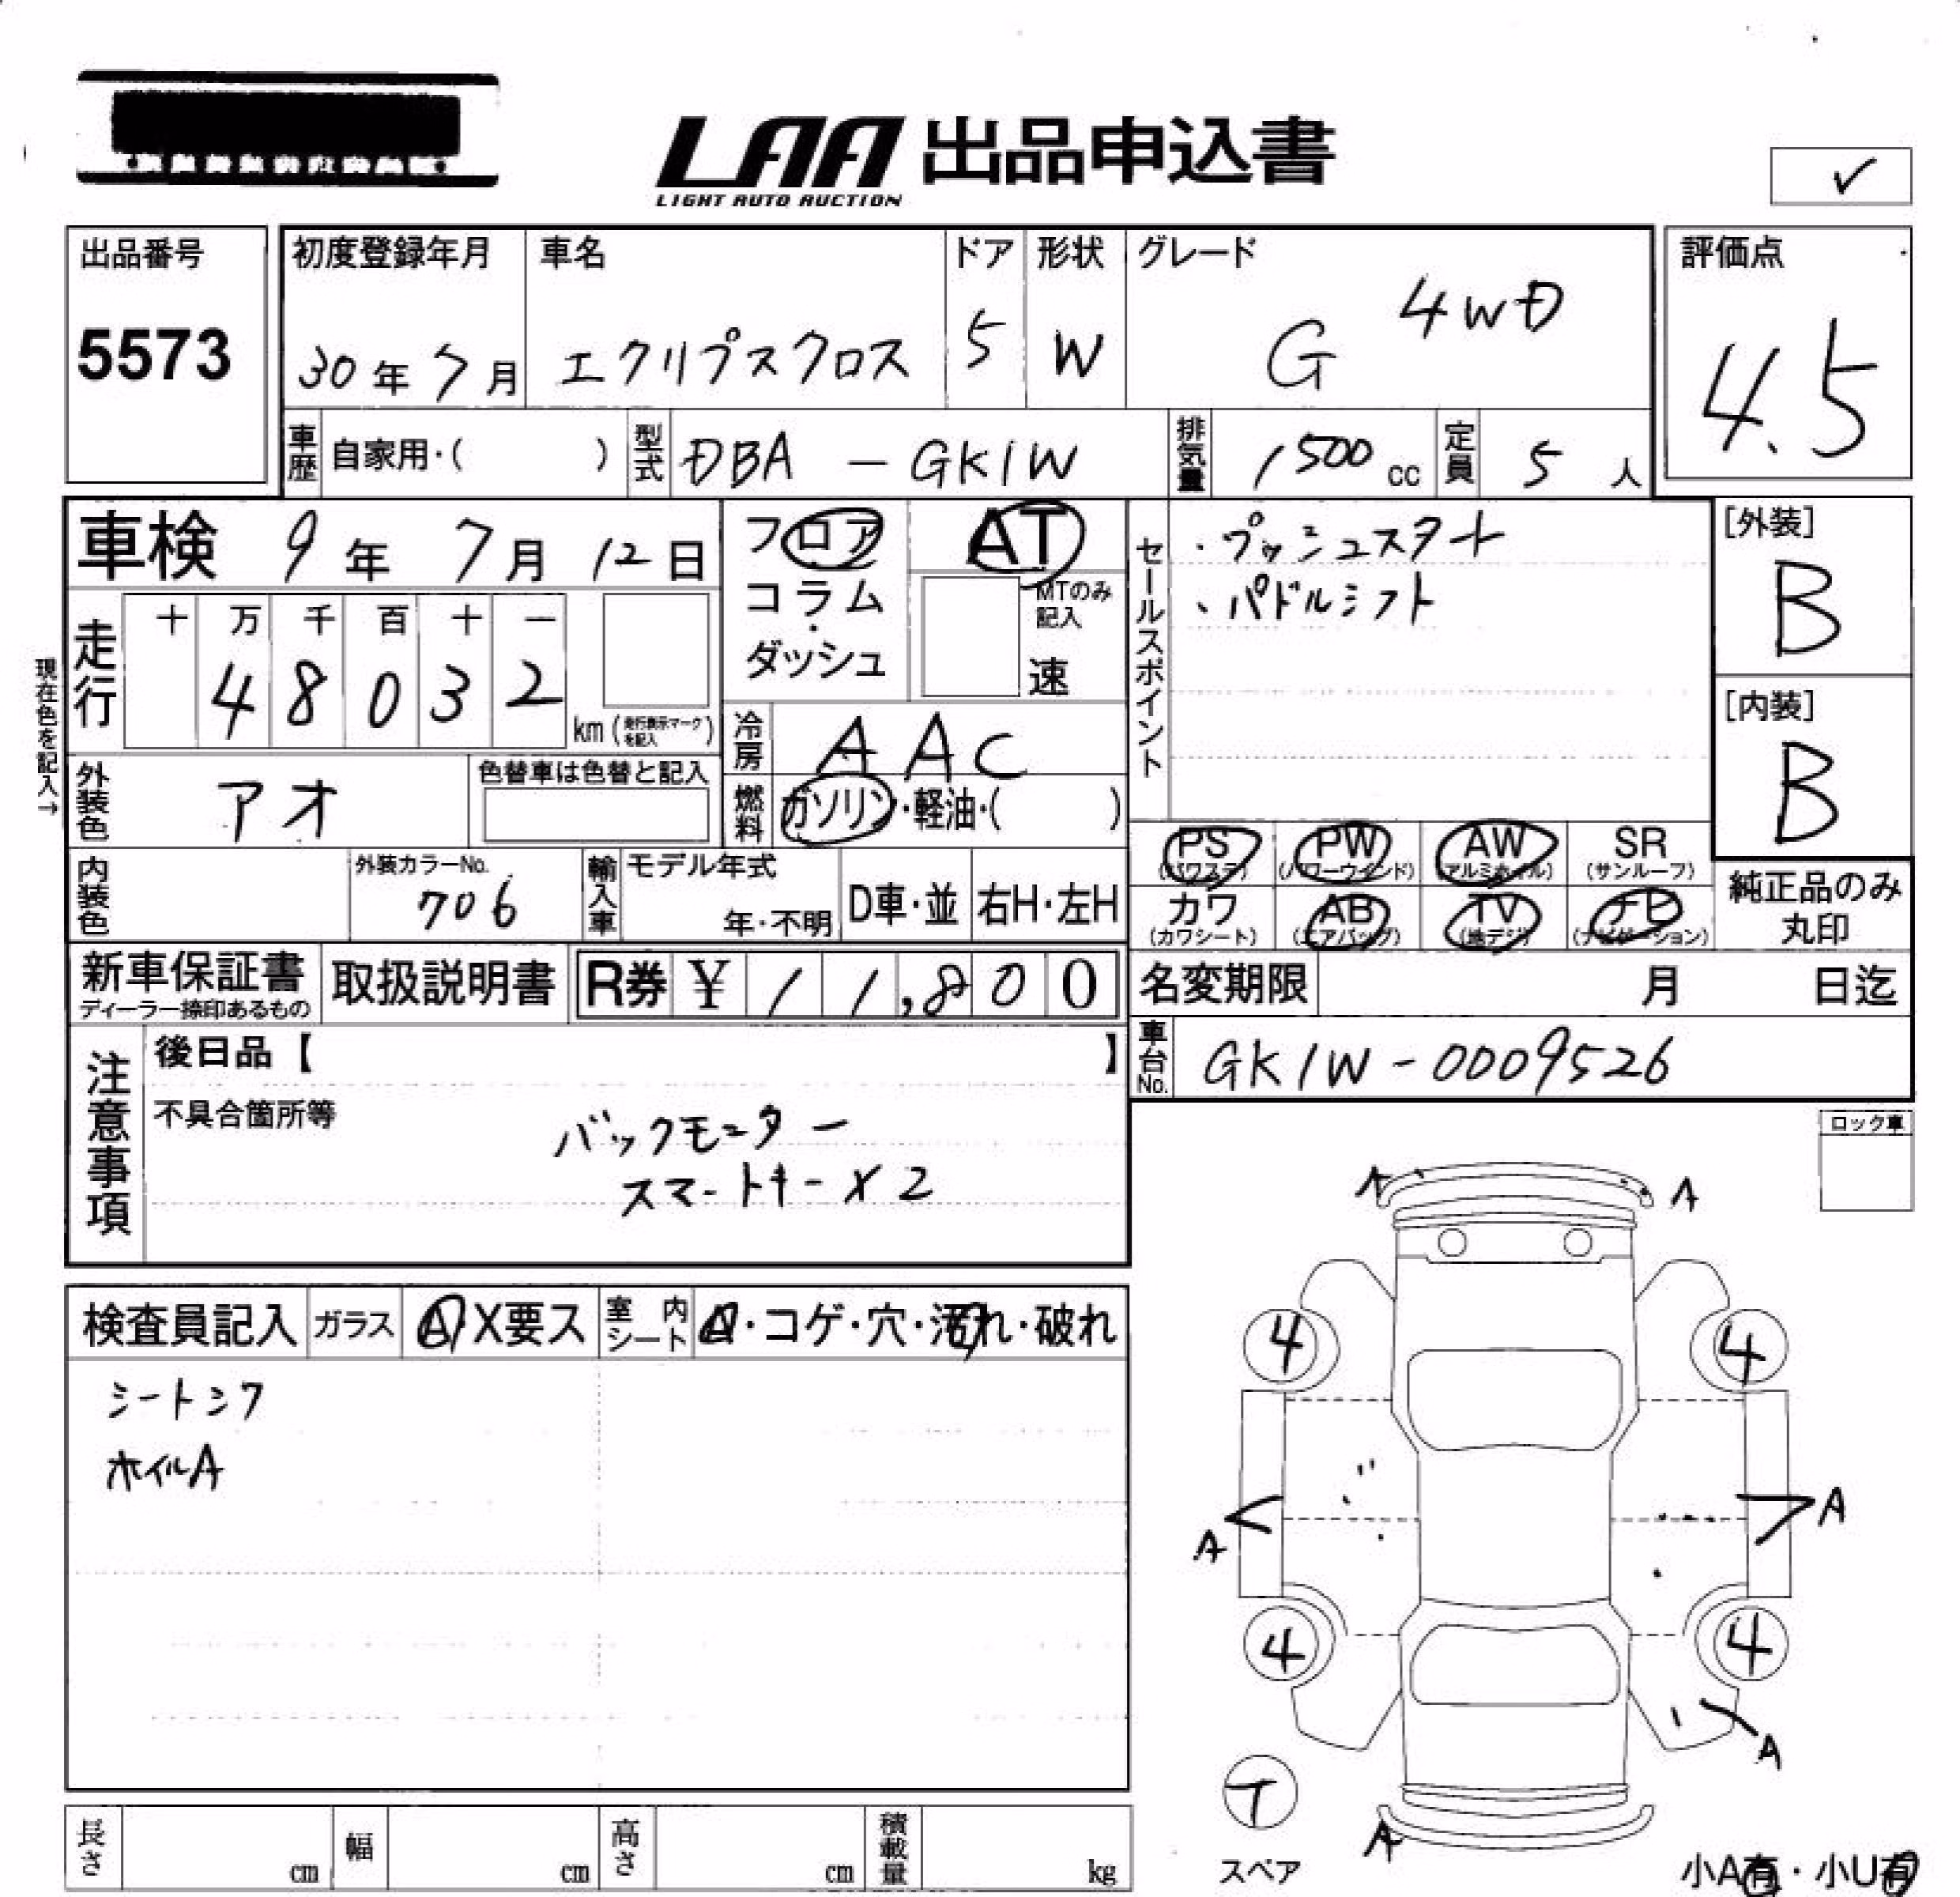 LAA 出品申込書
LIGHT AUTO AUCTION
✓
出品番号
5573
初度登録年月
30年7月
車名
エクリプスクロス
ドア
5
形状
W
グレード
G 4WD
評価点
4.5
車歴 自家用・( )
型式 DBA - GK1W
排気量 1500 cc
定員 5 人
車検 9年 7月 12日
フロア
コラム
・
ダッシュ
AT
MTのみ
記入
速
セールスポイント
・プッシュスタート
・パドルシフト
[外装]
B
[内装]
B
現在色を記入→
走行
十 万 千 百 十 一
4 8 0 3 2
km (走行表示マークを記入)
冷房 A A C
外装色 アオ
色替車は色替と記入
燃料 ガソリン・軽油・( )
内装色
外装カラーNo.
706
輸入車
モデル年式
年・不明
D車・並
右H・左H
PS (パワステ)
PW (パワーウインド)
AW (アルミホイル)
SR (サンルーフ)
カワ (カワシート)
AB (エアバッグ)
TV (地デジ)
ナビ (ナビゲーション)
純正品のみ
丸印
新車保証書
ディーラー捺印あるもの
取扱説明書
R券 ¥ 11,800
名変期限 月 日迄
車台No. GK1W-0009526
注意事項
後日品【 】
不具合箇所等
バックモニター
スマートキー×2
ロック車
検査員記入
ガラス
A X要ス
室内シート
A・コゲ・穴・汚れ・破れ
シートシワ
ホイルA
A A
4 4
A A
4 4
A
T
スペア
A
小A有・小U有
長さ cm
幅 cm
高さ cm
積載量 kg